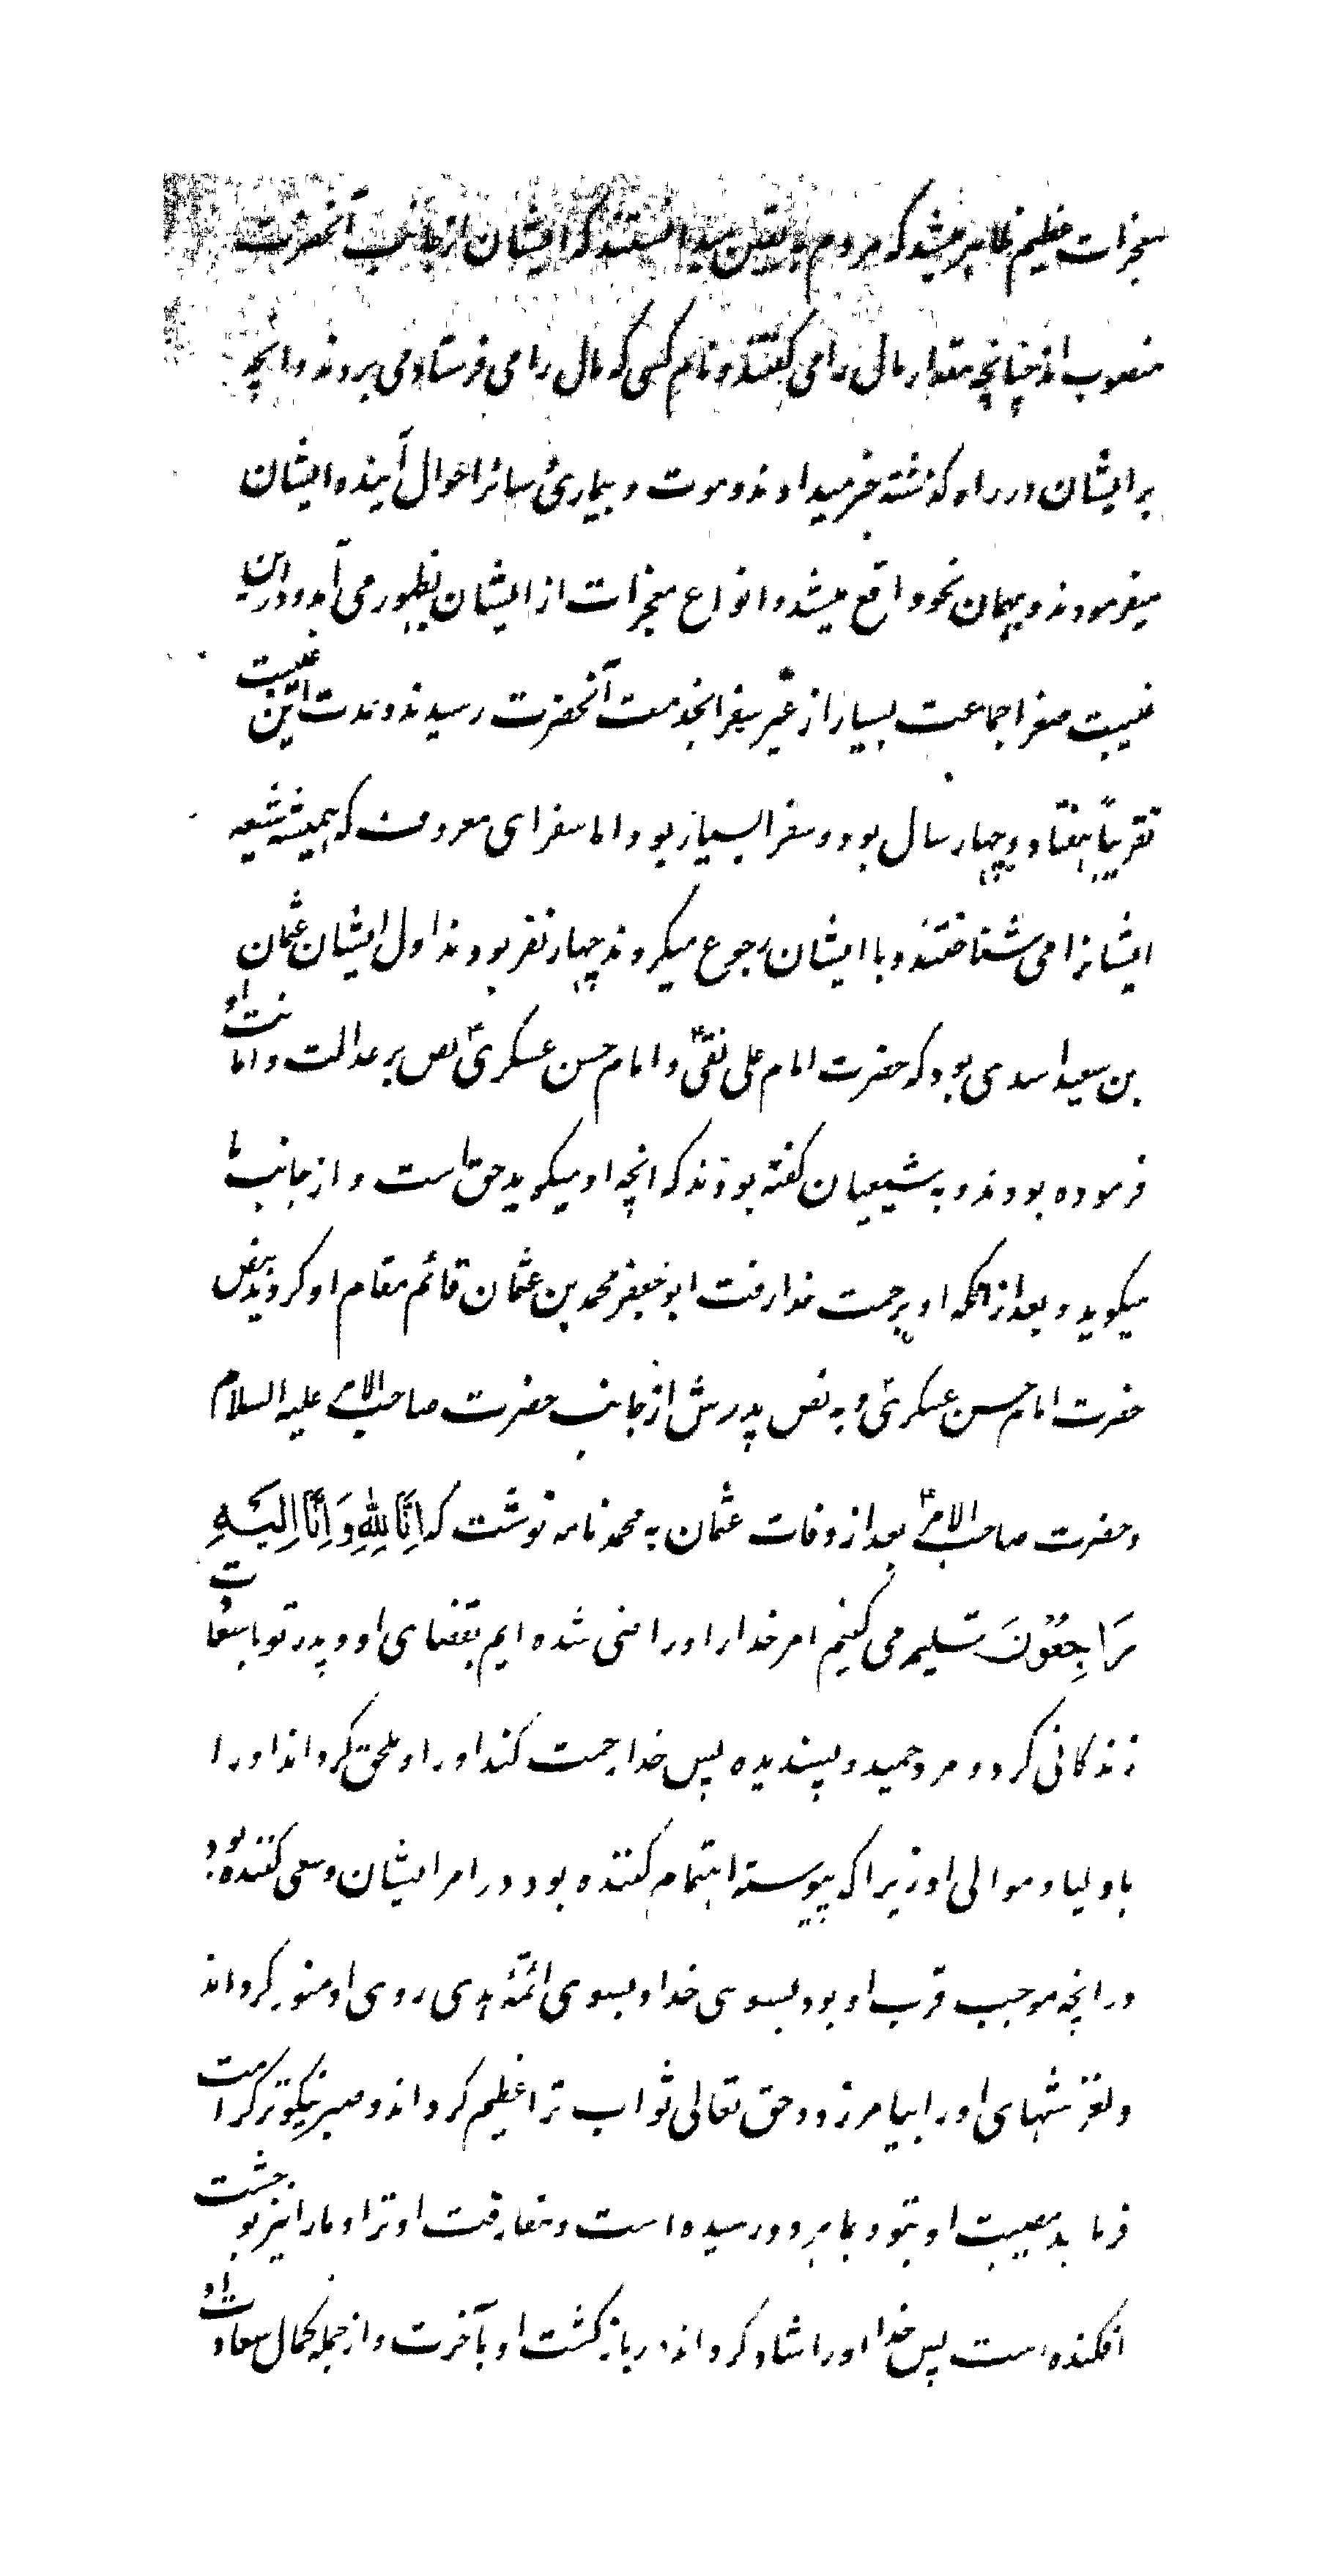 معجزات عظیم ظاهر میشد که مردم به یقین میدانستند که ایشان از جانب آنحضرت
منصوب اند چنانچه مقدار مال را می گفتند و نام کسی که مال را می فرستاد می بردند و انچه
بر ایشان در راه گذشته خبر میدادند و موت و بیماری و سائر احوال آینده ایشان
میفرمودند و بهمان نحو واقع میشد و انواع معجزات از ایشان بظهور می آمد و در این
غیبت صغرا جماعت بسیار از غیر سفرا بخدمت آنحضرت رسیدند و مدت این غیبت
تقریباً هفتاد و چهار سال بود و سفرا بسیار بود اما سفرای معروف که همیشه شیعه
ایشانرا می شناختند و با ایشان رجوع میکردند چهار نفر بودند اول ایشان عثمان
بن سعید اسدی بود که حضرت امام علی نقیؑ و امام حسن عسکریؑ نص بر عدالت و امانت او
فرموده بودند و به شیعیان گفته بودند که انچه او میگوید حق است و از جانب ما
میگوید و بعد از انکه او برحمت خدا رفت ابو جعفر محمد بن عثمان قائم مقام او گردید بنص
حضرت امام حسن عسکریؑ و به نص پدرش از جانب حضرت صاحب الامر علیه السلام
و حضرت صاحب الامرؑ بعد از وفات عثمان به محمد نامه نوشت که اِنَّا لِلّٰهِ وَ اِنَّا اِلَیْهِ
رَاجِعُوْنَ تسلیم می کنیم امر خدا را و راضی شده ایم بقضای او و پدر تو با سعادت
زندگانی کرد و مرد حمید و پسندیده پس خدا رحمت کند او را و ملحق گرداند او را
باولیا و موالی او زیرا که پیوسته اهتمام کننده بود در امر ایشان و سعی کننده بود
در انچه موجب قرب او بود بسوی خدا و بسوی ائمّهٔ هدی روی او منور گرداند
و لغزشهای او را بیامرزد و حق تعالی ثواب ترا عظیم گرداند و صبر نیکو ترا کرامت
فرماید مصیبت او بتو و بما هر دو رسیده است و مفارقت او ترا و ما را نیز بوحشت
افکنده است پس خدا او را شاد گرداند در بازگشت او بآخرت و از جمله کمال سعادت او